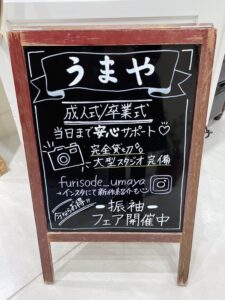 うまや
成人式/卒業式
当日まで安心サポート♡
完全貸切
大型スタジオ完備
furisode_umaya
インスタにて新作紹介も
今ならお得!!
振袖
フェア開催中